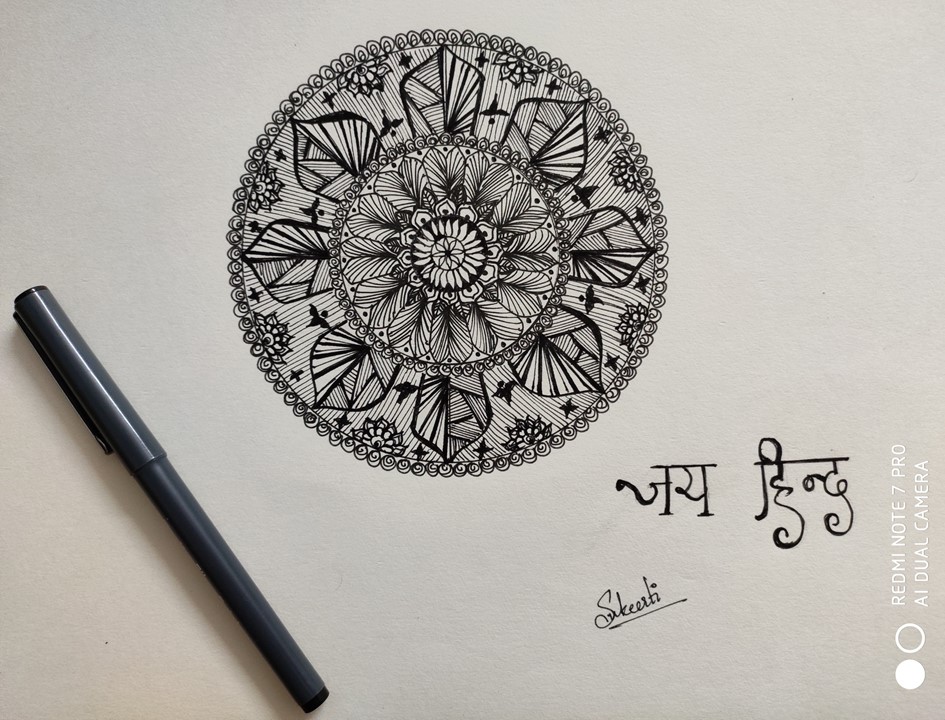 जय हिन्द
Sukeerti
REDMI NOTE 7 PRO
AI DUAL CAMERA